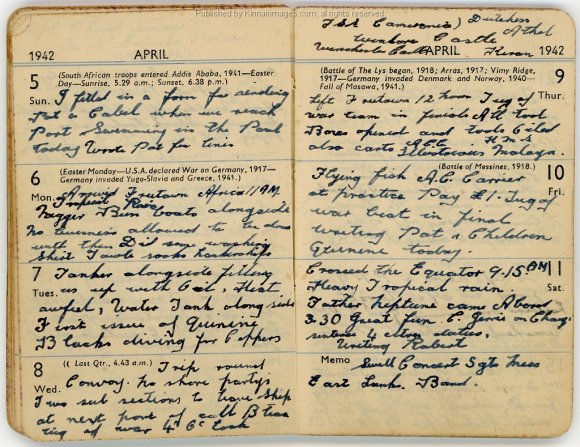 Published by Kinnairnimages.com, all rights reserved
1942 APRIL
5 (South African troops entered Addis Ababa, 1941—Easter
Day—Sunrise, 5.29 a.m.; Sunset, 6.38 p.m.)
Sun. I filled in a form for sending
Pat a Cabel when we reach
Port Swimming in the Pool
today Wrote Pat for tins
6 (Easter Monday—U.S.A. declared War on Germany, 1917—
Germany invaded Yugo-Slavia and Greece, 1941.)
Mon. Arrived Freetown Africa 11 AM.
Nigger Bum Boats alongside
No business allowed to be done
with them Did some washing
Shirt Towels socks hankerchifs
7 Tanker alongside filling
Tues. us up with Oil, Heat
awful, Water Tank along side
First issue of Quenine
Blacks diving for Coppers
8 (( Last Qtr., 4.43 a.m.) Trip round
Wed. Convoy. No shore partys
Two sub sections to leave ship
at next port of call B Team
tug of war
T.S.S. Cameronia) Dutchess Athol
Castle
Winchester Castle
APRIL 1942
(Battle of The Lys began, 1918; Arras, 1917; Vimy Ridge, 9
1917—Germany invaded Denmark and Norway, 1940—
Fall of Masawa, 1941.) Thur.
Left Freetown 12 hour Tug of
war team in finals All tool
Boxes opened and tools Oiled
also carts A.C.C. H.M.S
Illustrious Malaya.
(Battle of Messines, 1918.) 10
Flying fish A.C. Carrier Fri.
at practice Pay £1. Tug of
war beat in final
writing Pat & Children
Quenine today.
Crossed the Equator 9.15. AM 11
Heavy Tropical rain. Sat.
Father Neptune came Abord
3.30 Great fun on Charg
duties.
Writing Robert
Memo Swell Concert Sgts Mess
East Lancs. Band.